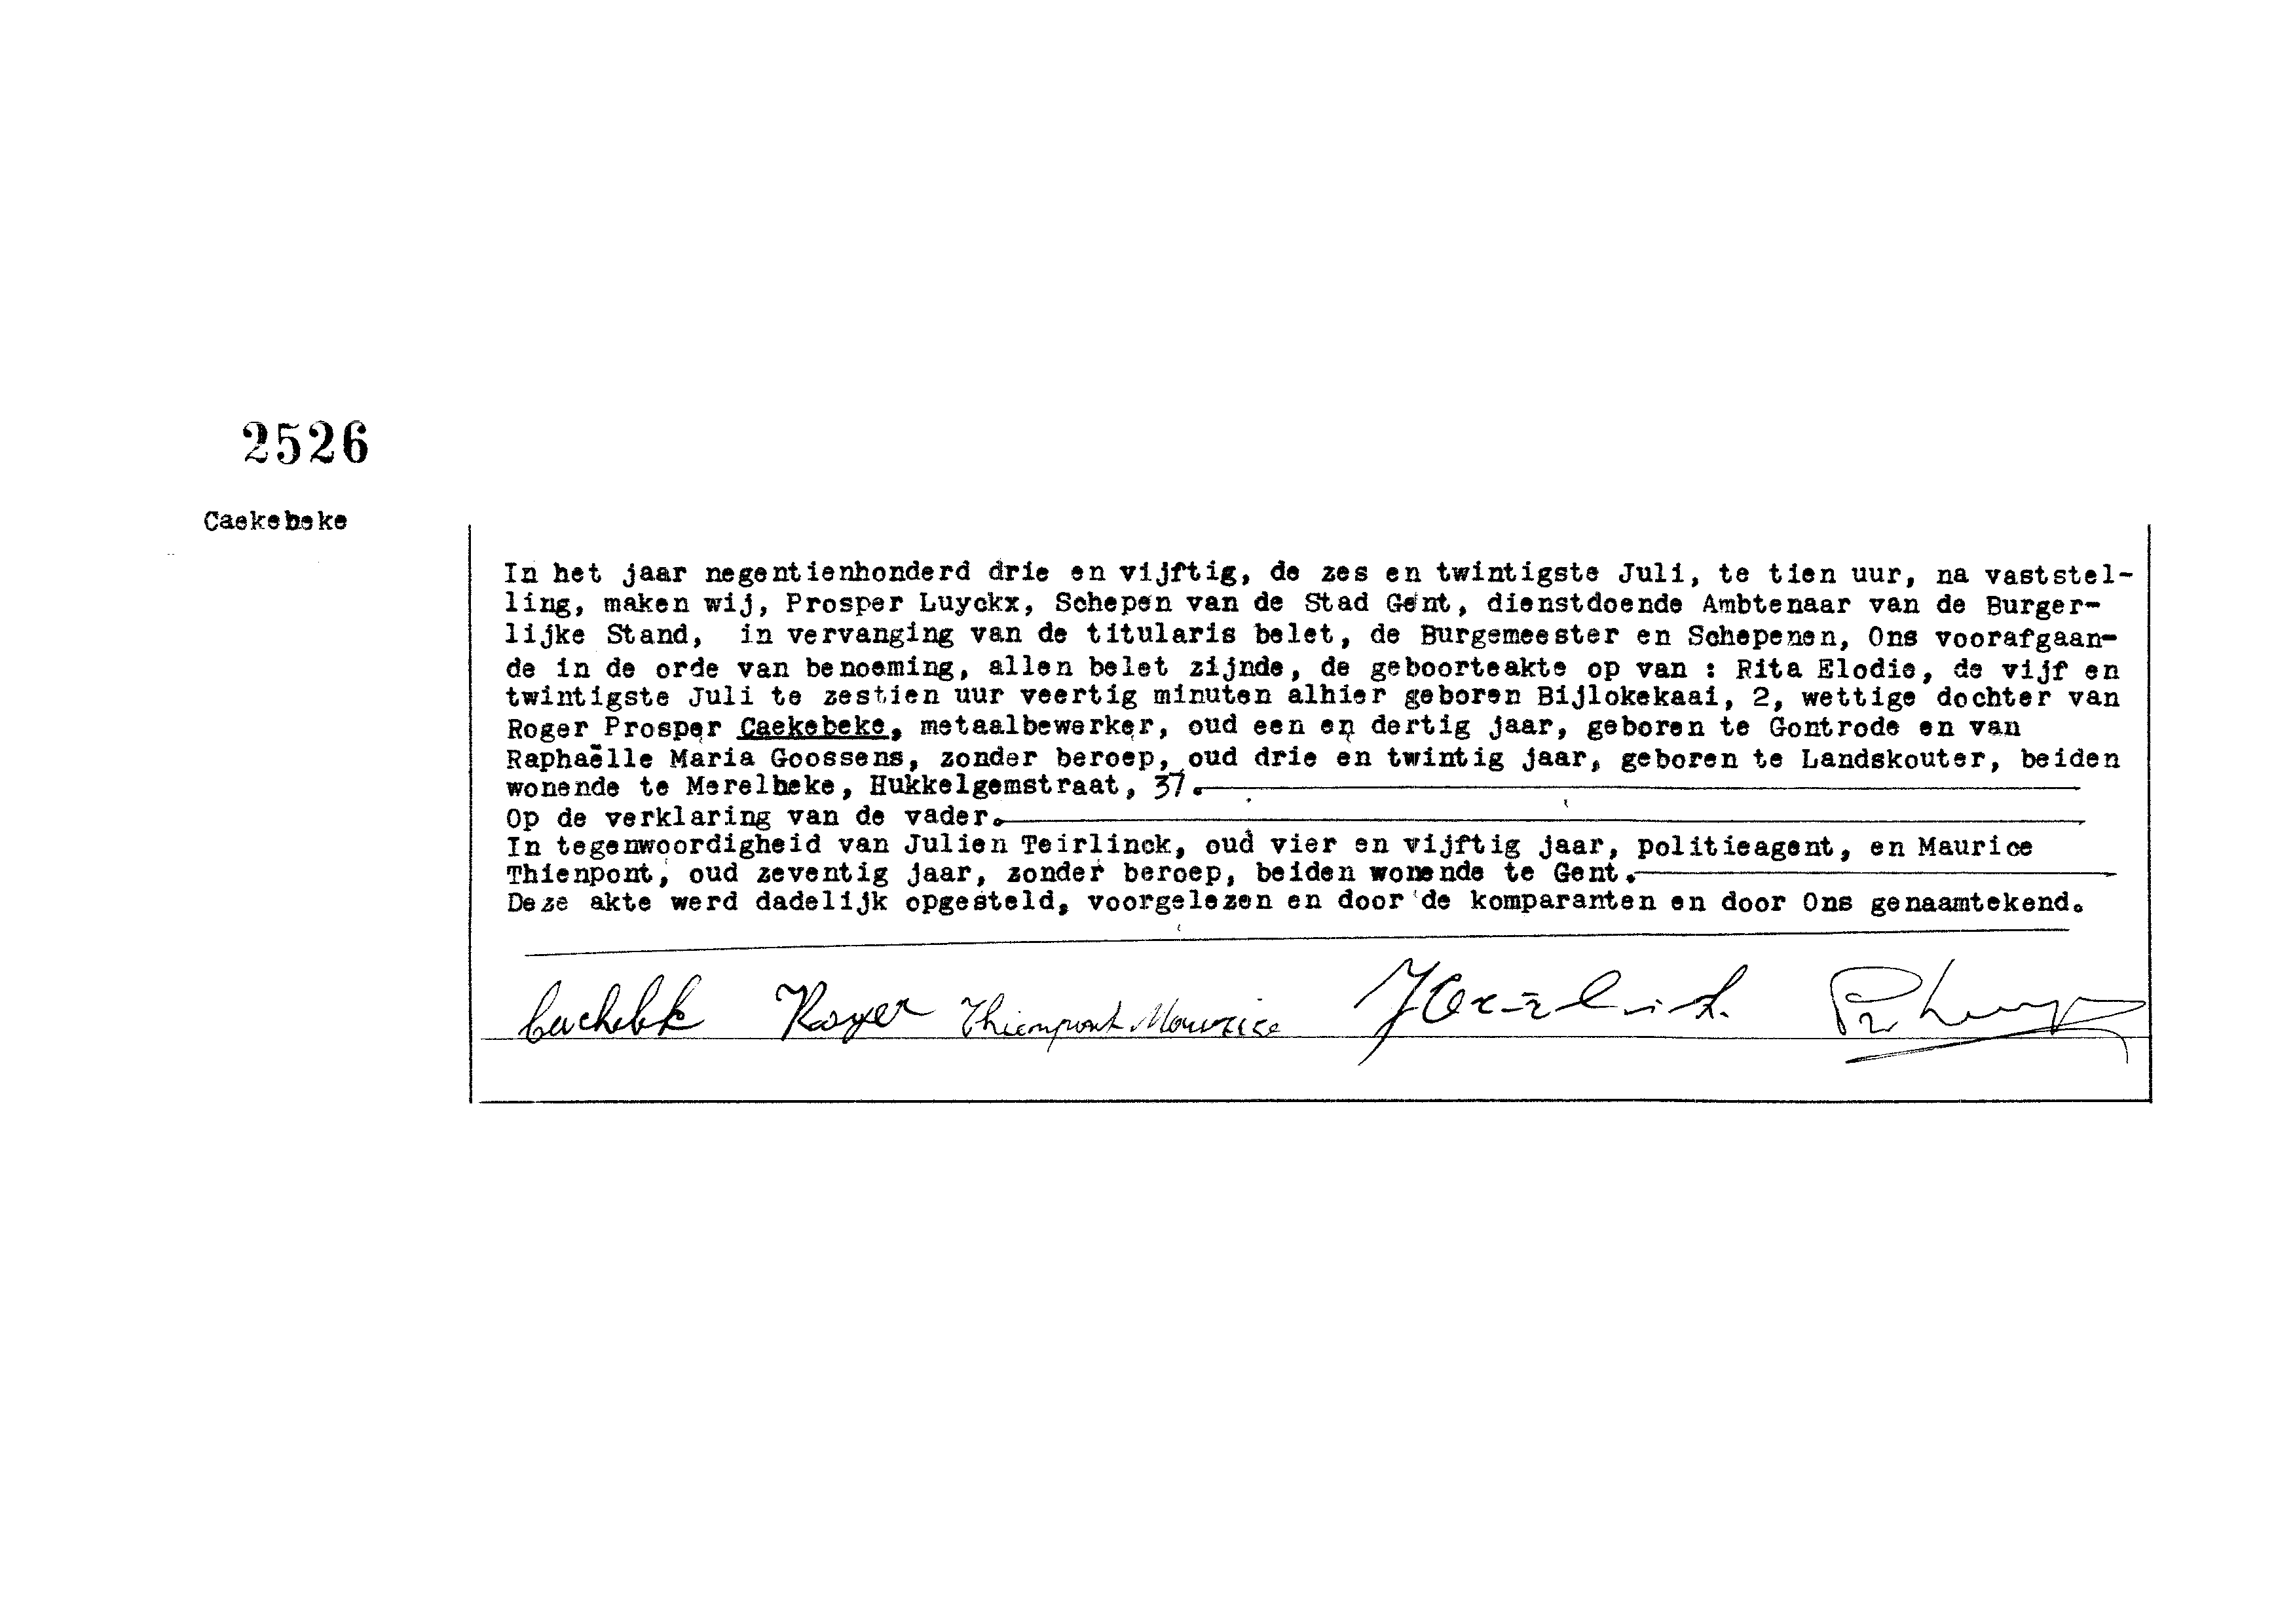 2526
Caekebeke
In het jaar negentienhonderd drie en vijftig, de zes en twintigste Juli, te tien uur, na vaststel-
ling, maken wij, Prosper Luyckx, Schepen van de Stad Gent, dienstdoende Ambtenaar van de Burger-
lijke Stand, in vervanging van de titularis belet, de Burgemeester en Schepenen, Ons voorafgaan-
de in de orde van benoeming, allen belet zijnde, de geboorteakte op van : Rita Elodie, de vijf en
twintigste Juli te zestien uur veertig minuten alhier geboren Bijlokekaai, 2, wettige dochter van
Roger Prosper Caekebeke, metaalbewerker, oud een en dertig jaar, geboren te Gontrode en van
Raphaëlle Maria Goossens, zonder beroep, oud drie en twintig jaar, geboren te Landskouter, beiden
wonende te Merelbeke, Hukkelgemstraat, 37.
Op de verklaring van de vader.
In tegenwoordigheid van Julien Teirlinck, oud vier en vijftig jaar, politieagent, en Maurice
Thienpont, oud zeventig jaar, zonder beroep, beiden wonende te Gent.
Deze akte werd dadelijk opgesteld, voorgelezen en door de komparanten en door Ons genaamtekend.
Roger Thienpont Maurice